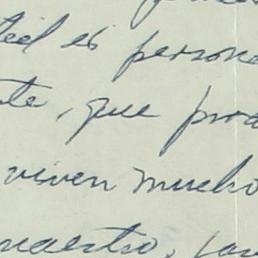 es persona
te, que pro
viven mucho
nuestro,